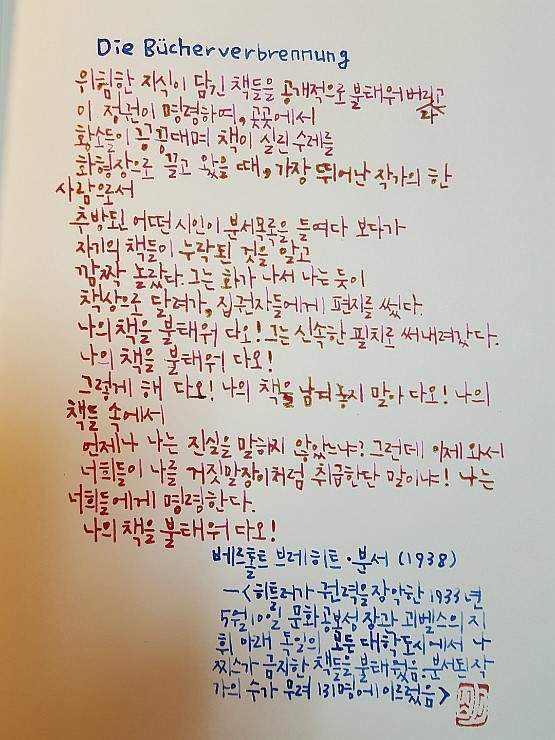 Die Bücherverbrennung
위험한 지식이 담긴 책들을 공개적으로 불태워 버리고
라
이 정권이 명령하여, 곳곳에서
황소들이 끙끙대며 책이 실린 수레를
화형장으로 끌고 왔을 때, 가장 뛰어난 작가의 한
사람으로서
추방된 어떤 시인이 분서목록을 들여다 보다가
자기의 책들이 누락된 것을 알고
깜짝 놀랐다. 그는 화가 나서 나는 듯이
책상으로 달려가, 집권자들에게 편지를 썼다.
나의 책을 불태워 다오! 그는 신속한 필치로 써내려갔다.
나의 책을 불태워 다오!
그렇게 해 다오! 나의 책을 남겨놓지 말아 다오! 나의
책들 속에서
언제나 나는 진실을 말하지 않았느냐? 그런데 이제 와서
너희들이 나를 거짓말장이처럼 취급한단 말이냐! 나는
너희들에게 명령한다.
나의 책을 불태워 다오!
베르톨트 브레히트 · 분서 (1938)
―<히틀러가 권력을 장악한 1933년
5월 10일 문화공보성 장관 괴벨스의 지
휘 아래 독일의 모든 대학도시에서 나
찌스가 금지한 책들을 불태웠음. 분서된 작
가의 수가 무려 131명에 이르렀음>